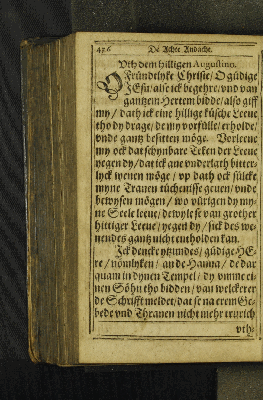 436 De Achte Andacht.
Vth dem hilligen Augustino.
O Fründtlyke Christe / O güdige
JEsu / alse ick begehre / vnd van
gantzem Hertem bidde / also giff
my / dath ick eine hillige küsche Leeue
tho dy drage / de my vorfülle / erholde /
vnde gantz besitten möge. Vorleene
my ock dat schynbare Teken der Leeue
yegen dy / dat ick ane vnderlath bitter-
lyck wenen möge / vp dath ock sülcke
myne Tranen tüchenisse geuen / vnde
bewysen mögen / wo vürigen dy my-
ne Seele leeue / dewyle se van grother
hittiger Leeue / yegen dy / sick des we-
nendes gantz nicht entholden kan.
Jck dencke ytzundes / güdige HE-
re / nömlyken / an de Hanna / de dar
quam in dynen Tempel / dy vmme ei-
nen Söhn tho bidden / van welckerer
de Schrifft meldet / dat se na erem Ge-
bede vnd Thranen nicht mehr trurich
vth-